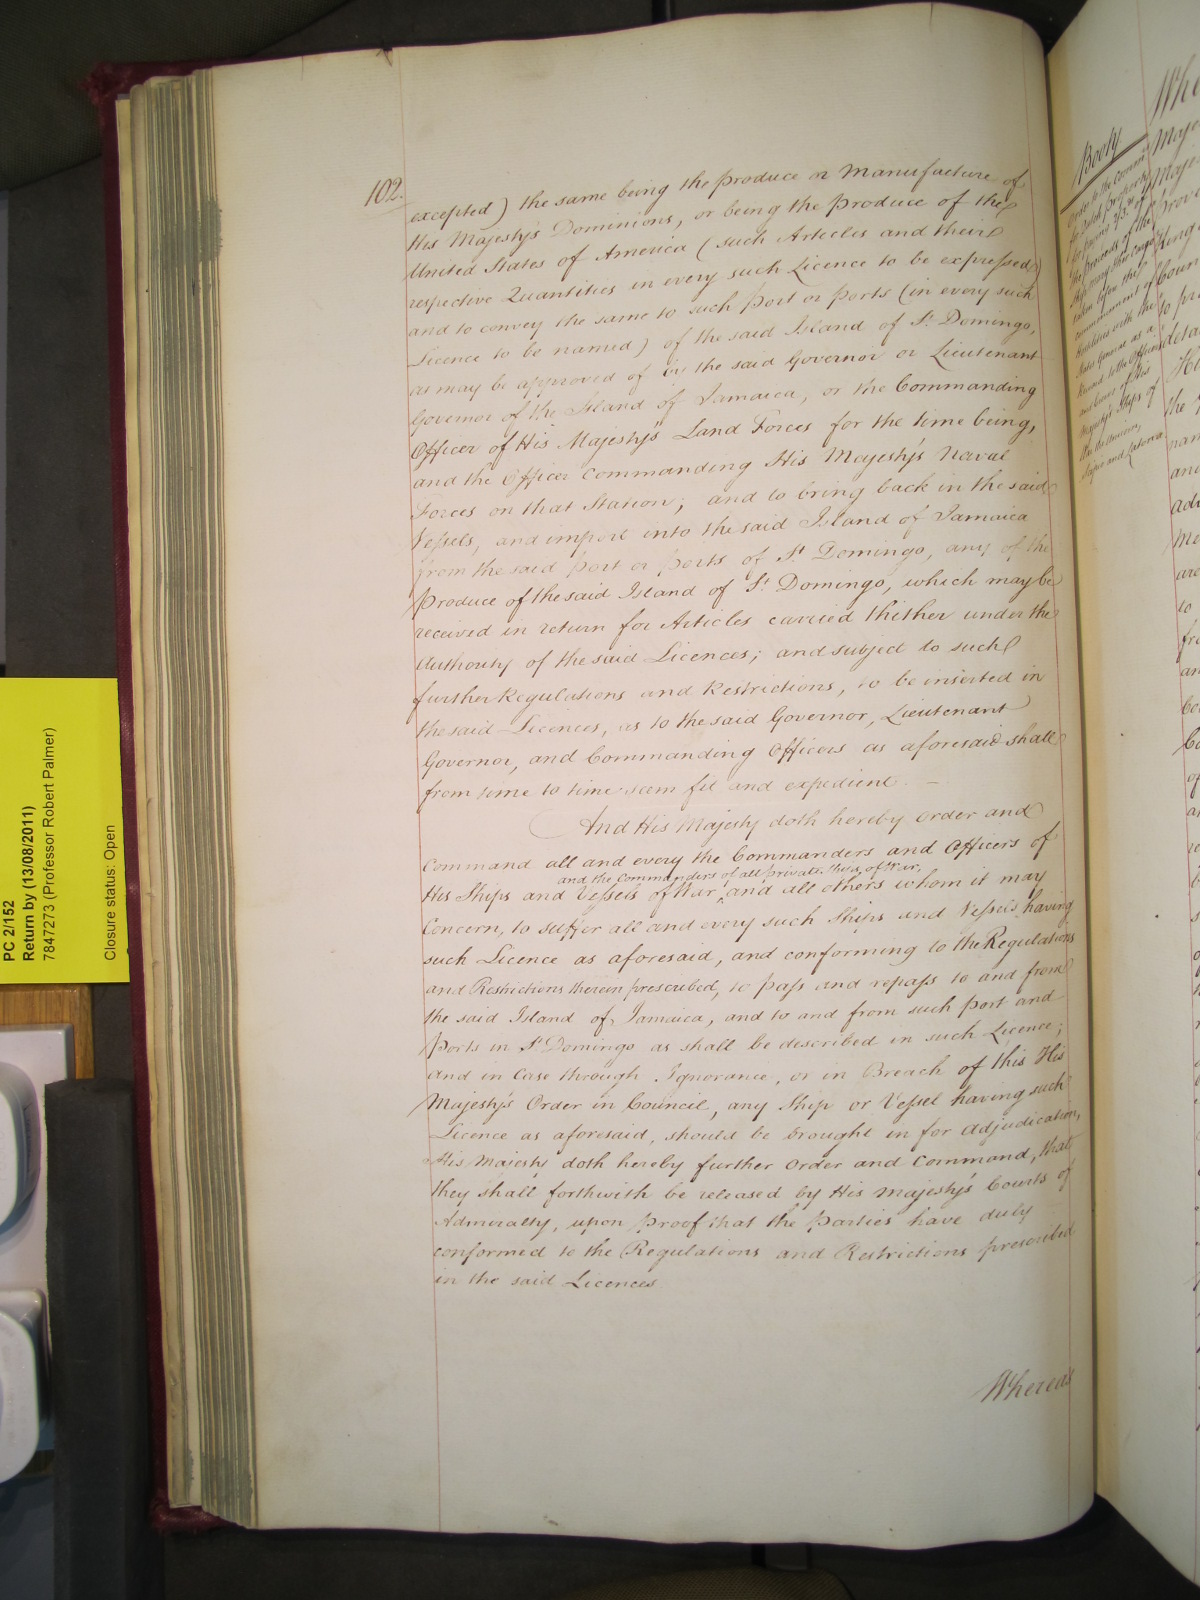 102.
excepted) the same being the produce or Manufacture of
His Majesty's Dominions, or being the Produce of the
United States of America (such Articles and their
respective Quantities in every such Licence to be expressed)
and to convey the same to such Port or Ports (in every such
Licence to be named) of the said Island of St. Domingo,
as may be approved of by the said Governor or Lieutenant
Governor of the Island of Jamaica, or the Commanding
Officer of His Majesty's Land Forces for the time being,
and the Officer Commanding His Majesty's Naval
Forces on that Station; and to bring back in the said
Vessels, and import into the said Island of Jamaica
from the said port or ports of St. Domingo, any of the
Produce of the said Island of St. Domingo, which may be
received in return for Articles carried thither under the
Authority of the said Licences; and subject to such
further Regulations and Restrictions, to be inserted in
the said Licences, as to the said Governor, Lieutenant
Governor, and Commanding Officers as aforesaid shall
from time to time seem fit and expedient. —
And His Majesty doth hereby Order and
Command all and every the Commanders and Officers of
and the Commanders of all private Ships of War,
His Ships and Vessels of War, and all others whom it may
Concern, to suffer all and every such Ships and Vessels having
such Licence as aforesaid, and conforming to the Regulations
and Restrictions therein prescribed, to pass and repass to and from
the said Island of Jamaica, and to and from such port and
Ports in St. Domingo as shall be described in such Licence;
and in Case through Ignorance, or in Breach of this His
Majesty's Order in Council, any Ship or Vessel having such
Licence as aforesaid, should be brought in for Adjudication,
His Majesty doth hereby further Order and Command, that
they shall forthwith be released by His Majesty's Courts of
Admiralty, upon proof that the Parties have duly
conformed to the Regulations and Restrictions prescribed
in the said Licences
Whereas
Booty
PC 2/152
Return by (13/08/2011)
7847273 (Professor Robert Palmer)
Closure status: Open